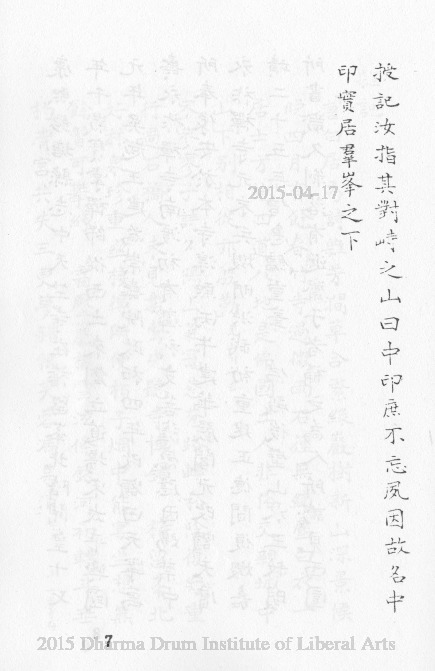 授記汝指其對峙之山曰中印庶不忘夙因故名中
印實居羣峯之下
2015-04-17
7
2015 Dharma Drum Institute of Liberal Arts